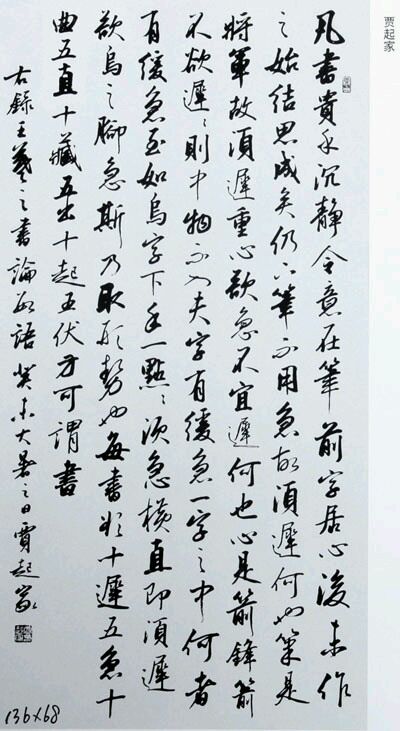 贾起家
凡書貴乎沉静令意在筆前字居心後未作
之始結思成矣仍下筆不用急故須遲何也筆是
將軍故須遲重心欲急不宜遲何也心是箭鋒箭
不欲遲〻則中物不入夫字有緩急一字之中何者
有緩急至如烏字下手一點〻須急橫直即須遲
欲烏之腳急斯乃取形勢也每書欲十遲五急十
曲五直十藏五出十起五伏方可謂書
右錄王羲之書論數語癸未大暑之日賈起家
136×68